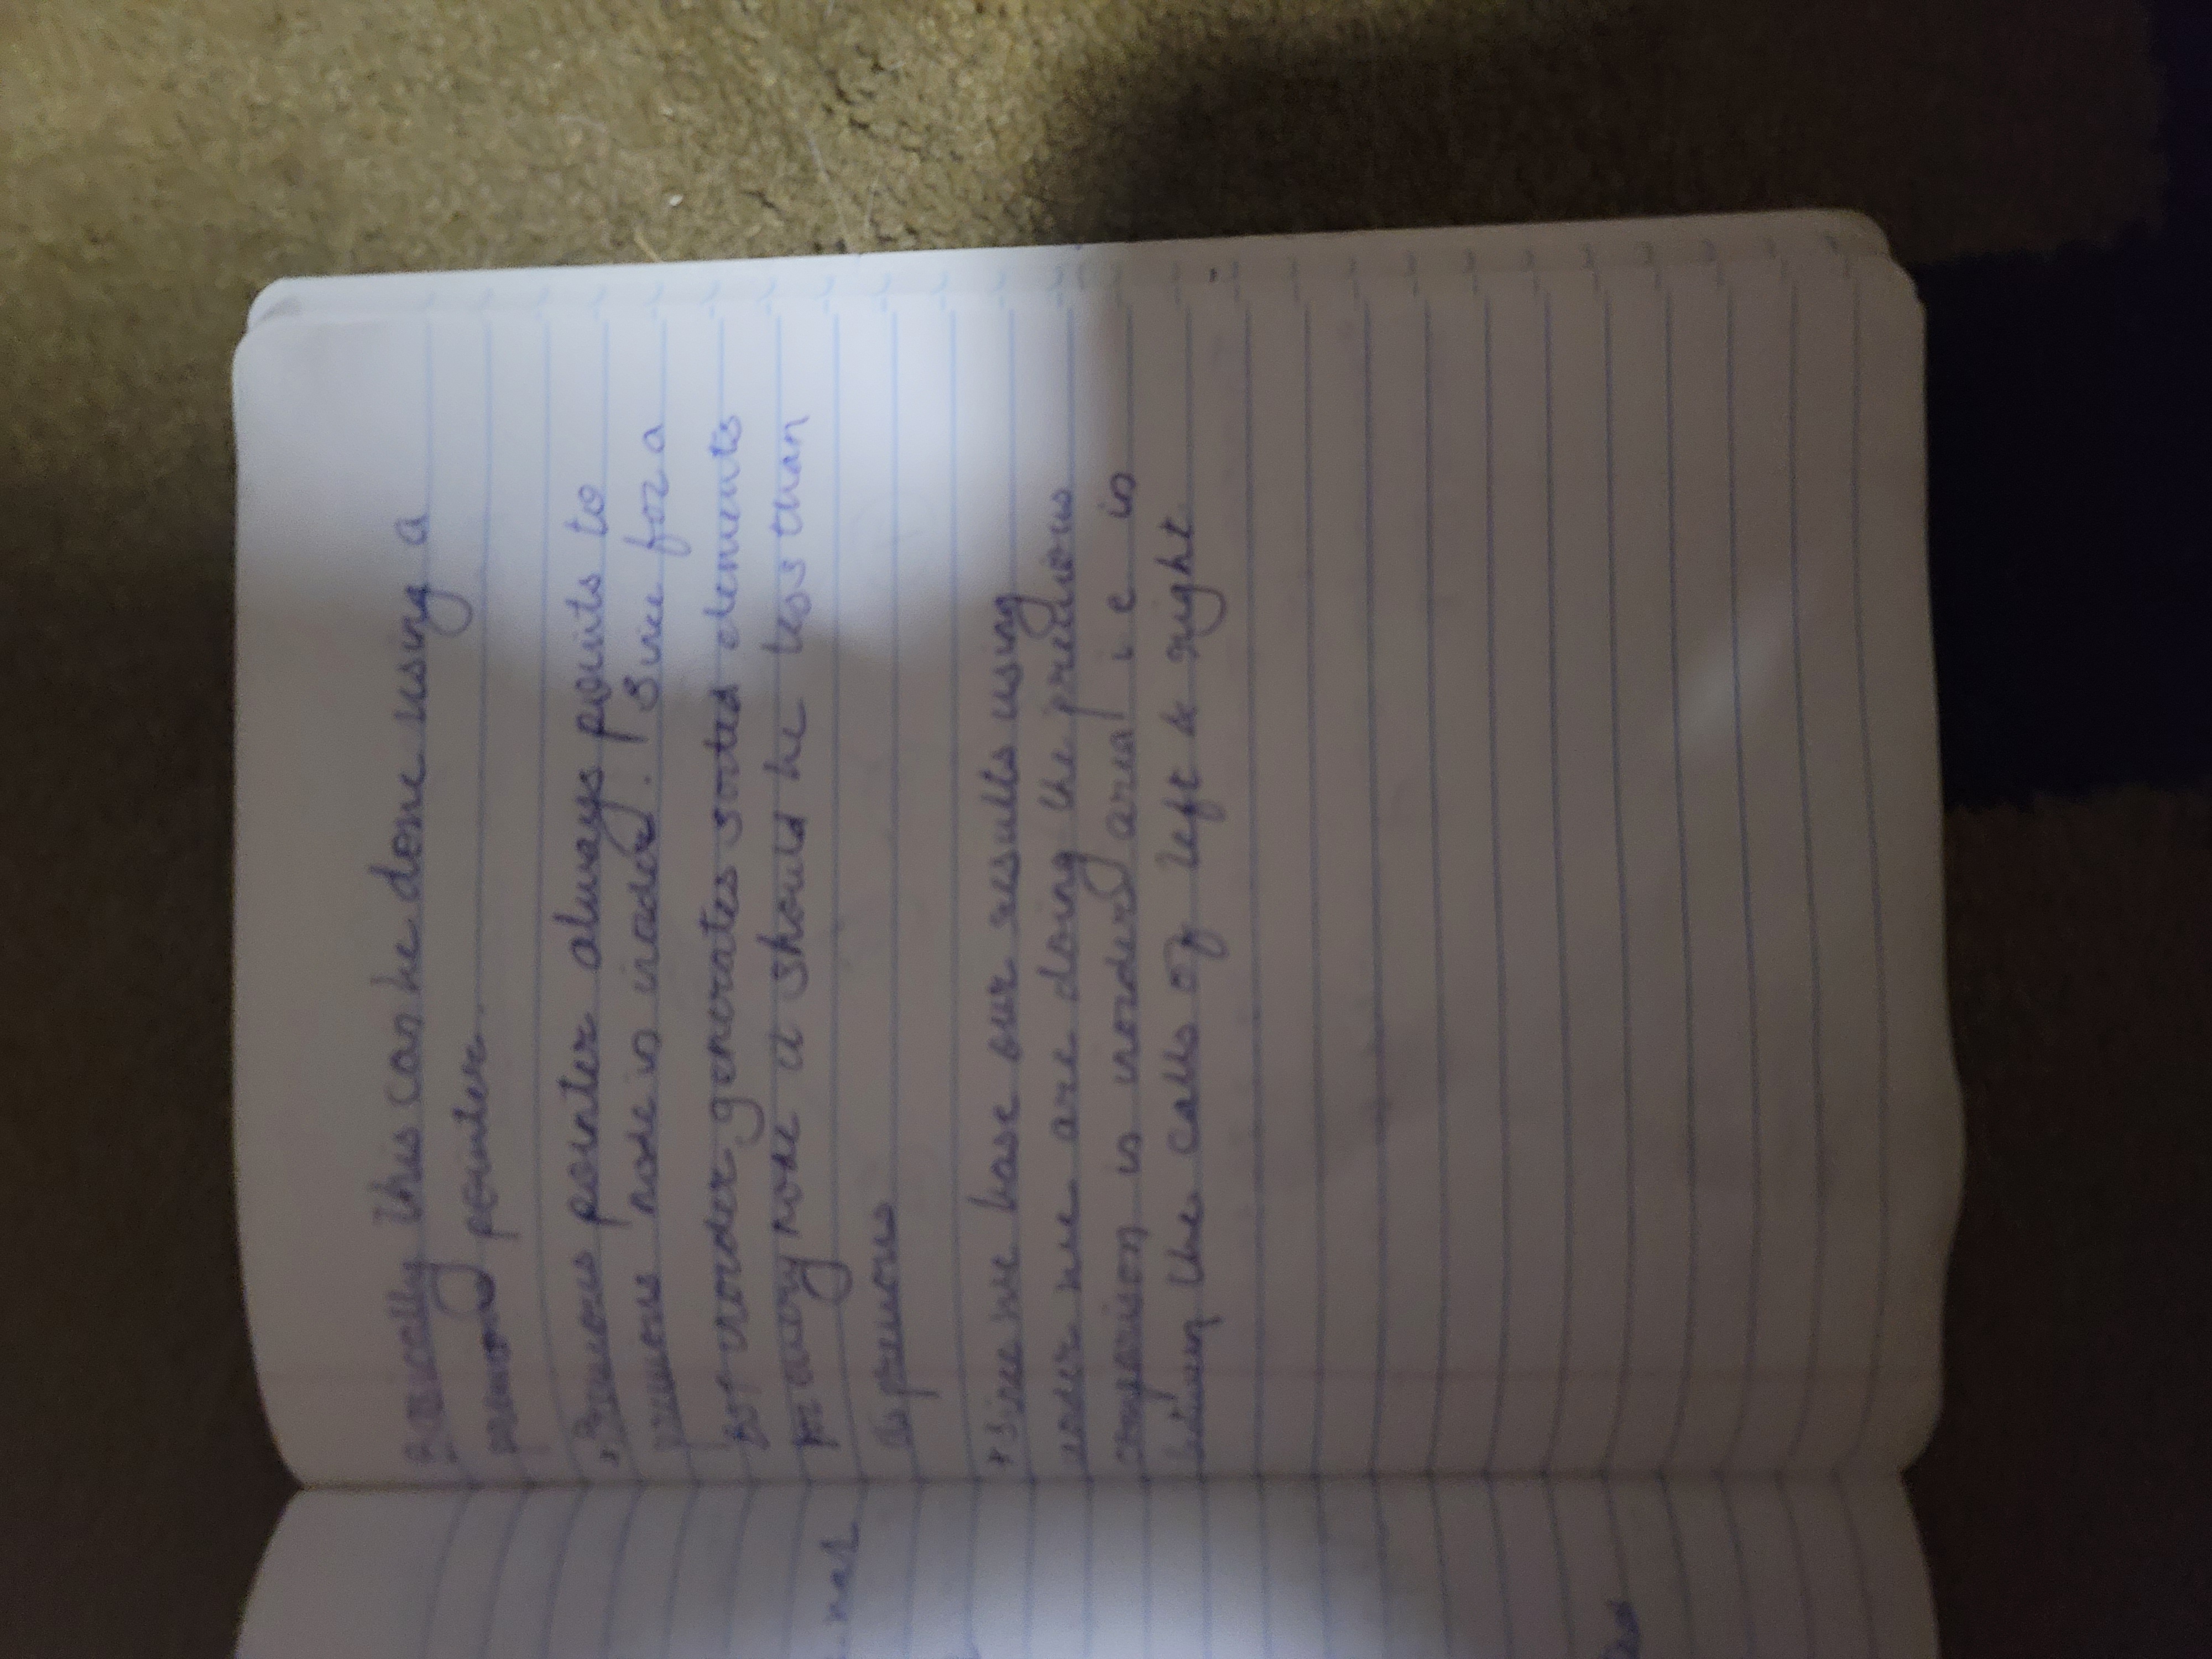 Basically this can be done using a
previous pointer.
* Previous pointer always points to
previous node in inorder. Since for a
BST inorder generates sorted elements
for every node it should be less than
its previous
* Since we base our results using
inoder we are doing the previous
comparison in inorder area i e in
between the calls of left & right
nat